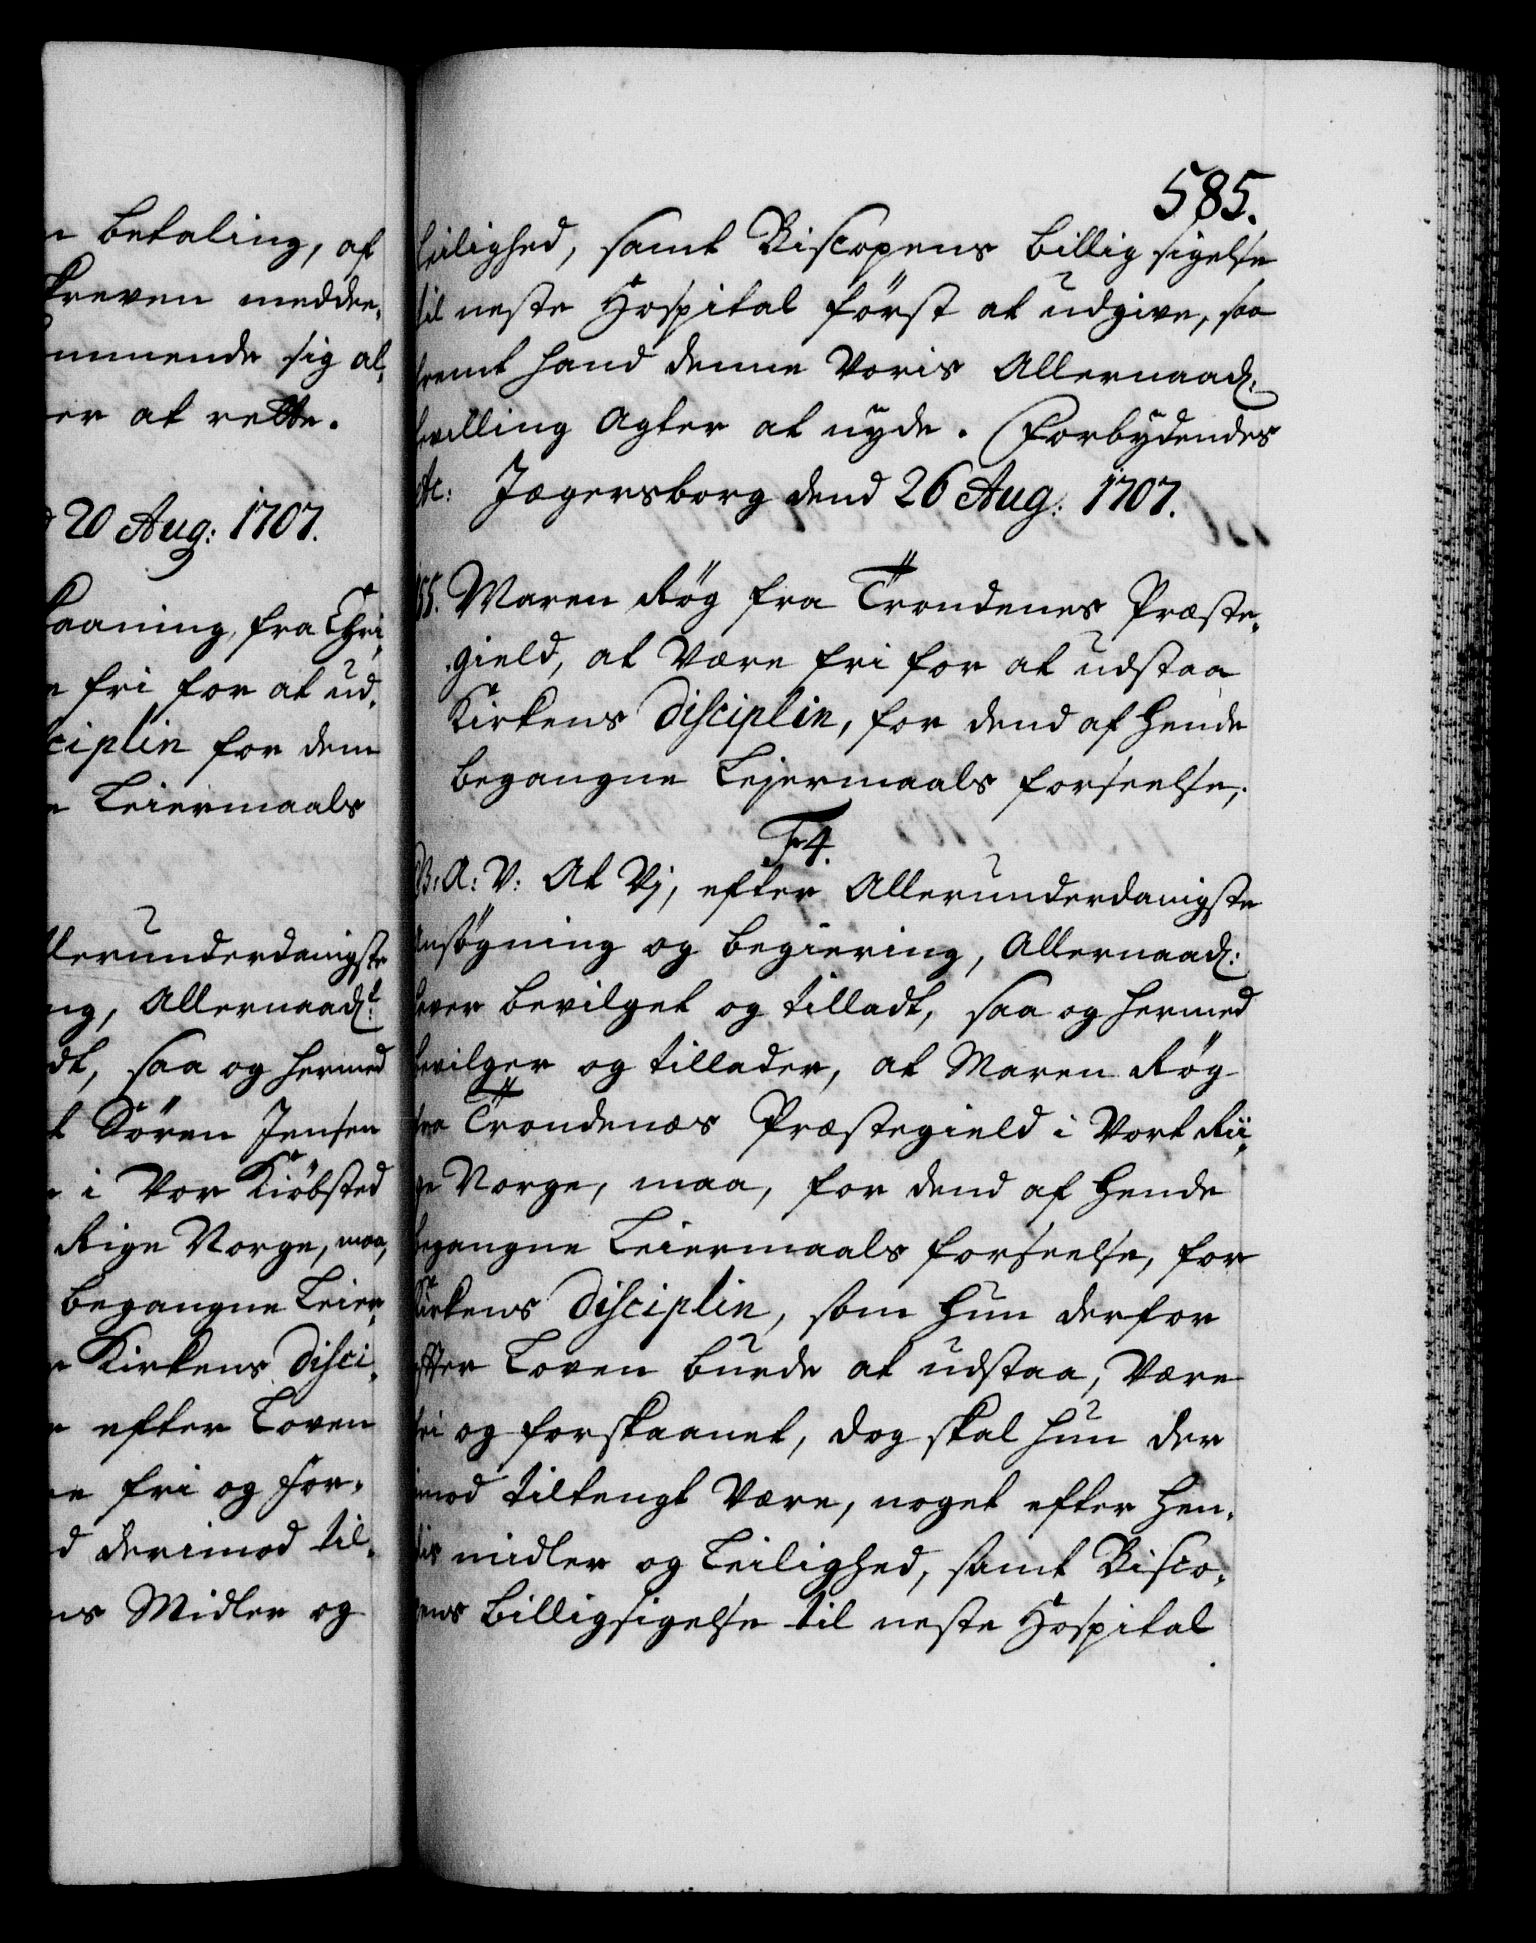 betaling, at
kreven meddee,
ommende sig al,
er at rette.
20 Aug: 1707.
kaaning, fra Chri,
fri for at ud,
ciplin for dem
Leiermaals
llerunderdanigste
ng, Allernaadl:
dt, saa og hermed
t Sören Jensen
i Vor Kiöbsted
Rige Norge, maa,
begangne Leier,
Kirkens disci,
efter Loven
re fri og for,
d derimod til,
ns Midler og
585.
leilighed, samt Biscopens billig sigelse
til neste Hospital först at udgive, saa
fremt hand denne Voris Allernaad:
bevilling agter at nyde. Forbydendes
etc: Jægersborg dend 26 Aug: 1707.
155. Maren Røg fra Trondenes Præste,
gield, at være fri for at udstaa
Kirkens disciplin, for dend af hende
begangne Lejermaals forseelse,
F4.
G: A: V: At Vj, efter Allerunderdanigste
ansögning og begiering, Allernaad:
hever bevilget og tilladt, saa og hermed
bevilger og tillader, at Maren Røg
fra Trondenæs Præstegield i Vort Rii,
ge Norge, maa, for dend af hende
begangne Leiermaals forseelse, for
Kirkens disciplin, som hun derfor
efter Loven burde at udstaa, være
fri og forskaanet, dog skal hun der
imod tiltengt være, noget efter hen,
dis midler og Leilighed, samt Bisco,
pens billigsigelse til neste Hospital